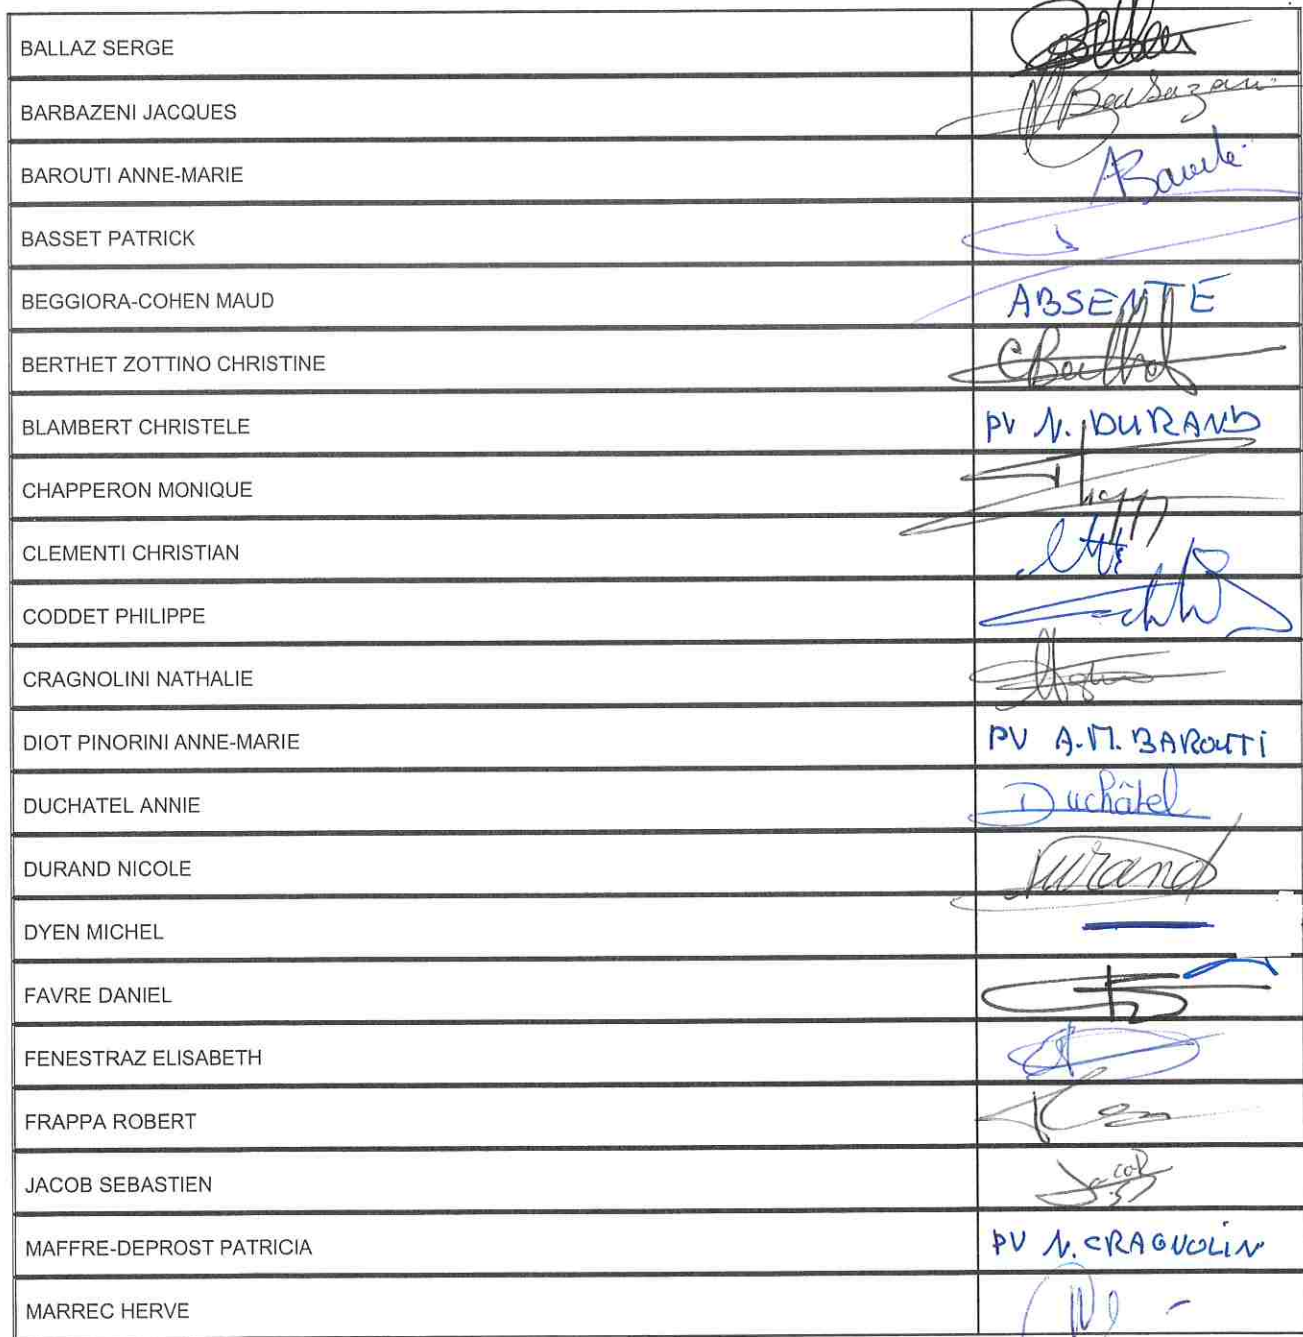 BALLAZ SERGE
BARBAZENI JACQUES
BAROUTI ANNE-MARIE
BASSET PATRICK
BEGGIORA-COHEN MAUD ABSENTE
BERTHET ZOTTINO CHRISTINE
BLAMBERT CHRISTELE PV N. DURAND
CHAPPERON MONIQUE
CLEMENTI CHRISTIAN
CODDET PHILIPPE
CRAGNOLINI NATHALIE
DIOT PINORINI ANNE-MARIE PV A.M. BAROUTI
DUCHATEL ANNIE Duchâtel
DURAND NICOLE Durand
DYEN MICHEL
FAVRE DANIEL
FENESTRAZ ELISABETH
FRAPPA ROBERT
JACOB SEBASTIEN Jacob
MAFFRE-DEPROST PATRICIA PV N. CRAGNOLIN
MARREC HERVE